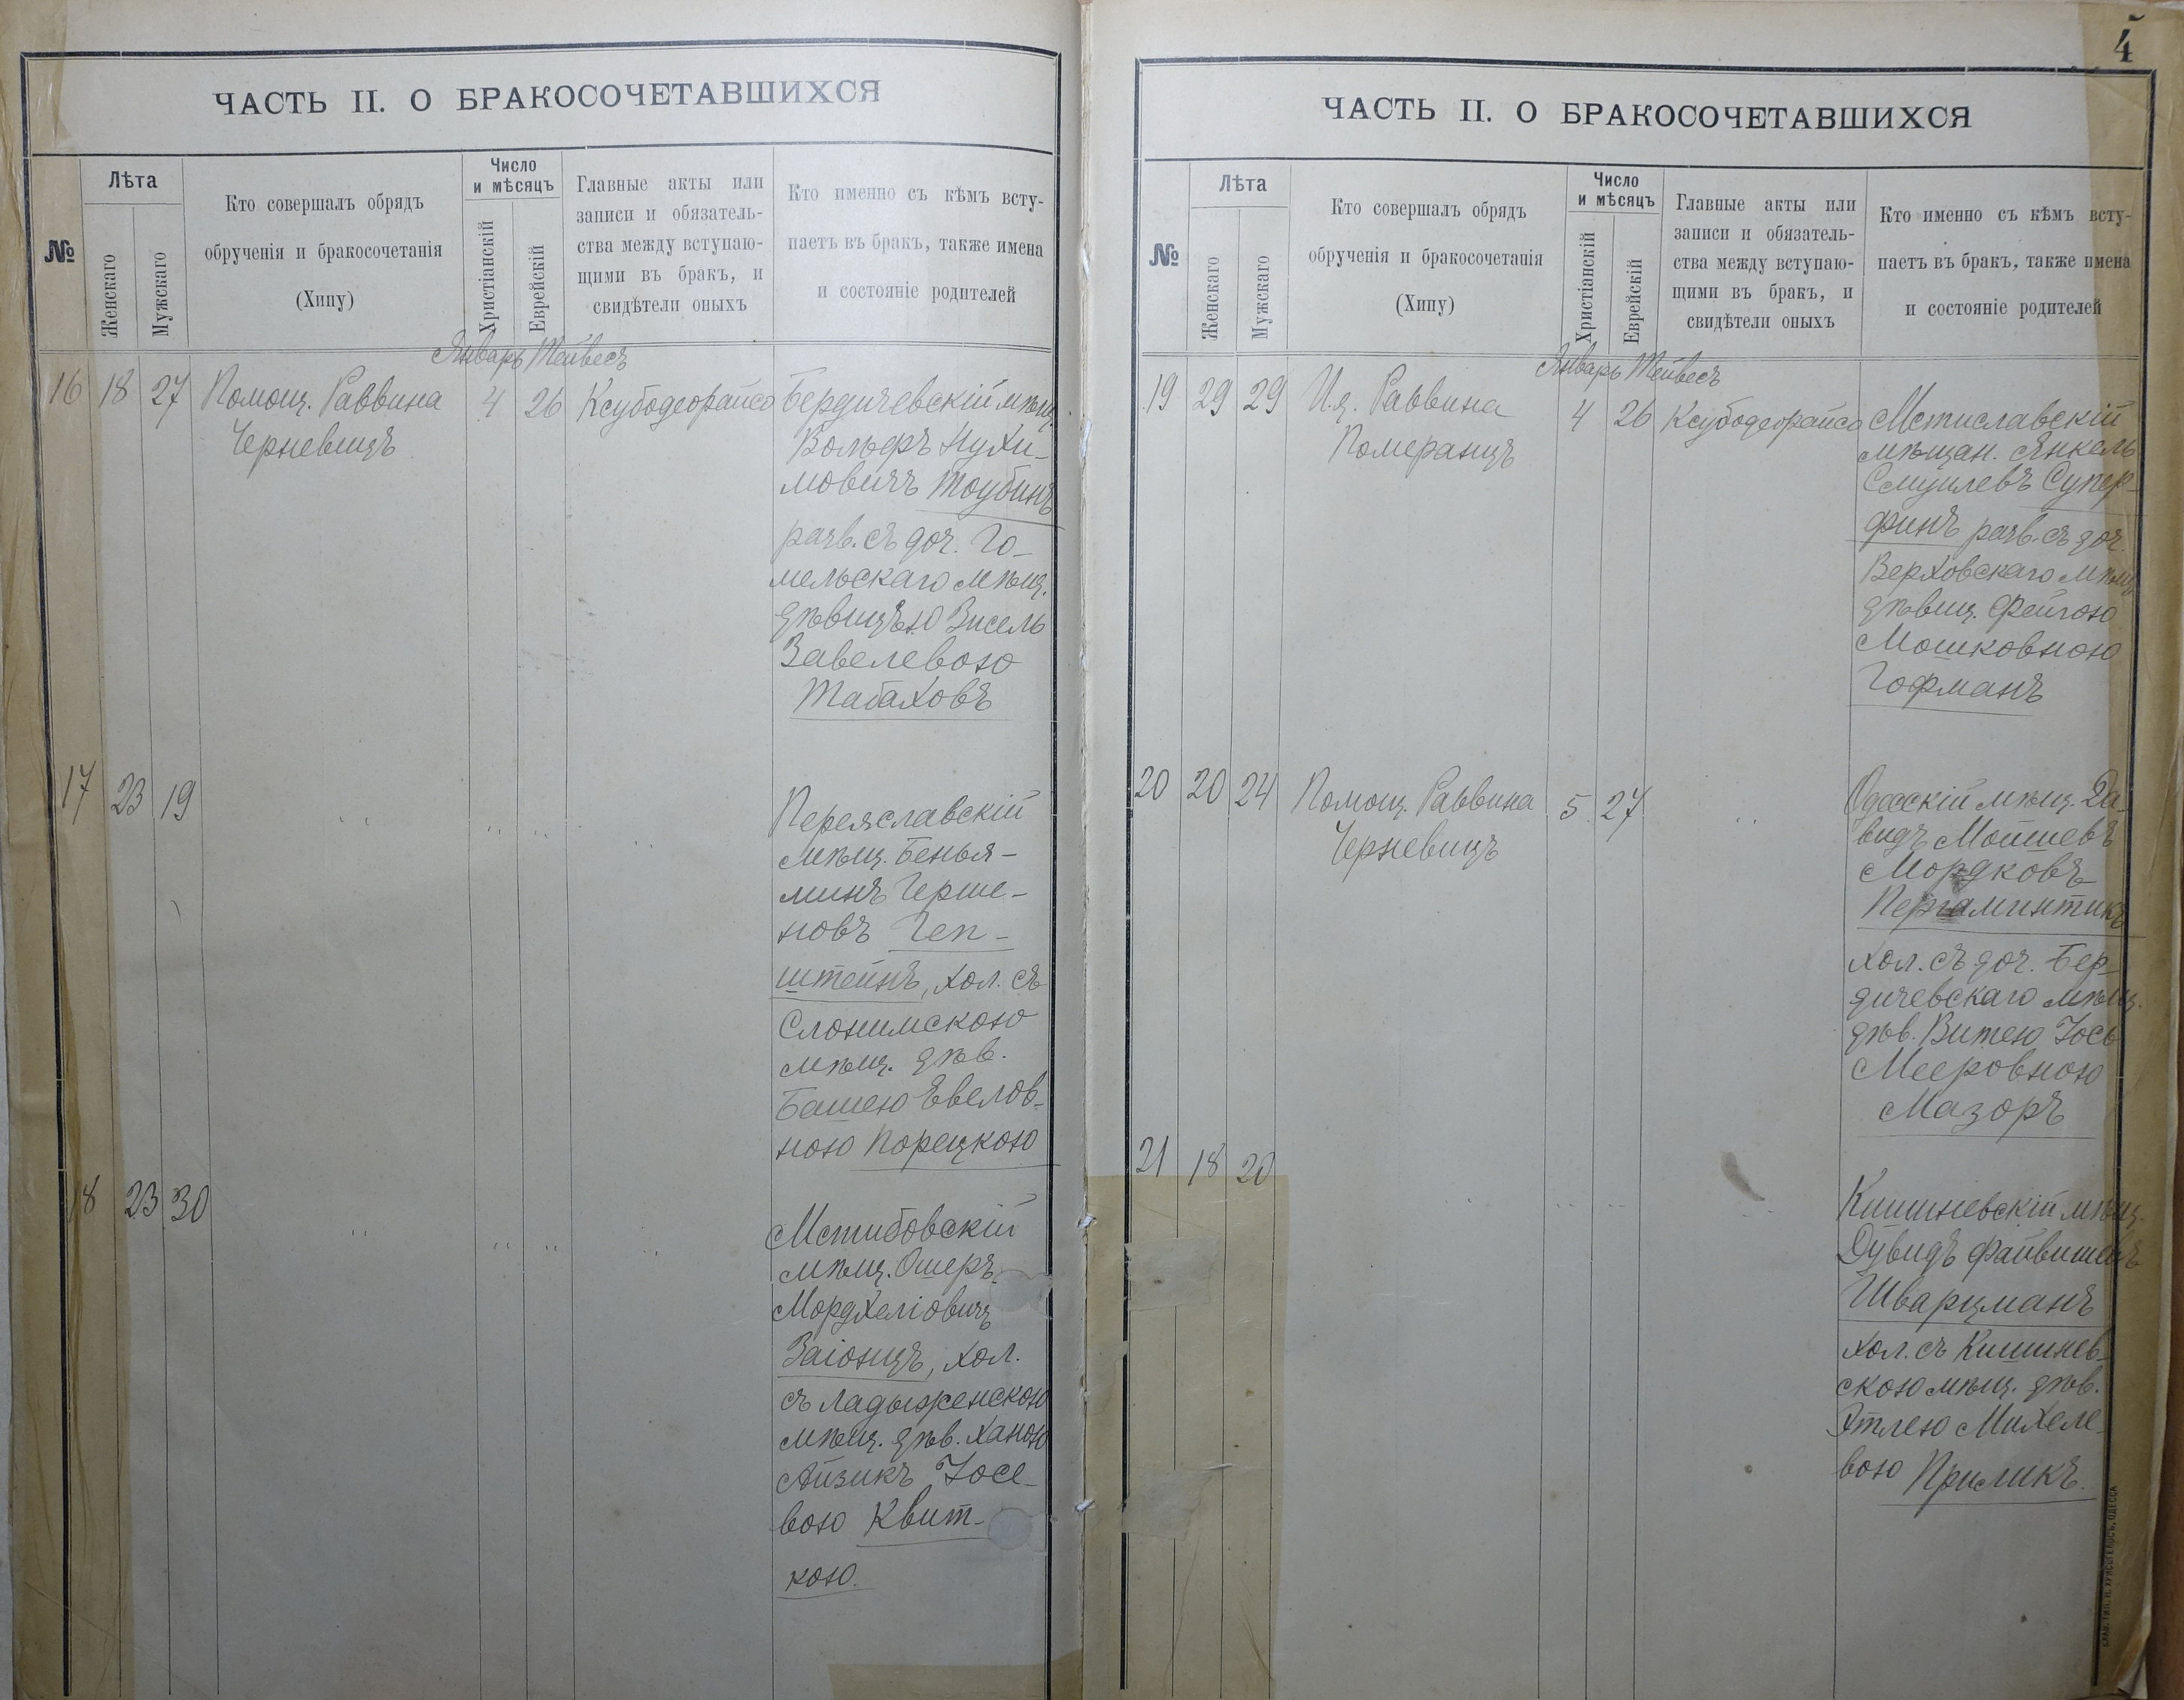 ЧАСТЬ II. О БРАКОСОЧЕТАВШИХСЯ
№
Лѣта
Женскаго
Мужскаго
Кто совершалъ обрядъ
обрученія и бракосочетанія
(Хипу)
Число
и мѣсяцъ
Христіанскій
Еврейскій
Главные акты или
записи и обязатель-
ства между вступаю-
щими въ бракъ, и
свидѣтели оныхъ
Кто именно съ кѣмъ всту-
паетъ въ бракъ, также имена
и состояніе родителей
Январь Тейвесъ
16 18 27 Помощ. Раввина 4 26 Ксубодеорайсо Бердичевскій мѣщ.
Черневицъ
Вольфъ Нухи-
мовичъ Тоубинъ
разв. съ доч. Го-
мельскаго мѣщ.
дѣвицею Висель
Завелевою
Табаховъ
17 23 19 " " " "
Переяславскій
мѣщ. Бенья-
минъ Герше-
новъ Геп-
штейнъ, хол. съ
Слонимскою
мѣщ. дѣв.
Башею Евелов-
ною Порецкою
18 23 30 " " " "
Мстибовскій
мѣщ. Ошеръ
Мордхеліовичъ
Заіонцъ, хол.
съ Ладыженскою
мѣщ. дѣв. Ханою
Айзикъ Іосе-
вою Квит-
кою.
4
ЧАСТЬ II. О БРАКОСОЧЕТАВШИХСЯ
№
Лѣта
Женскаго
Мужскаго
Кто совершалъ обрядъ
обрученія и бракосочетанія
(Хипу)
Число
и мѣсяцъ
Христіанскій
Еврейскій
Главные акты или
записи и обязатель-
ства между вступаю-
щими въ бракъ, и
свидѣтели оныхъ
Кто именно съ кѣмъ всту-
паетъ въ бракъ, также имена
и состояніе родителей
Январь Тейвесъ
19 29 29 И.д. Раввина 4 26 Ксубодеорайсо Мстиславскій
Померанцъ
мѣщан. Янкель
Смуилевъ Супер-
финъ разв. съ доч.
Верховскаго мѣщ.
дѣвиц. Фейгою
Мошковною
Гофманъ
20 20 24 Помощ. Раввина 5 27 " Одесскій мѣщ. Да-
Черневицъ
видъ Мошиевъ
Мордковъ
Пергаминтикъ
хол. съ доч. Бер-
дичевскаго мѣщ.
дѣв. Витею Іось
Мееровною
Мазоръ
21 18 20 " " " "
Кишиневскій мѣщ.
Дувидъ Файвишевъ
Шварцманъ
хол. съ Кишинев-
скою мѣщ. дѣв.
Этлею Михеле-
вою Приликъ.